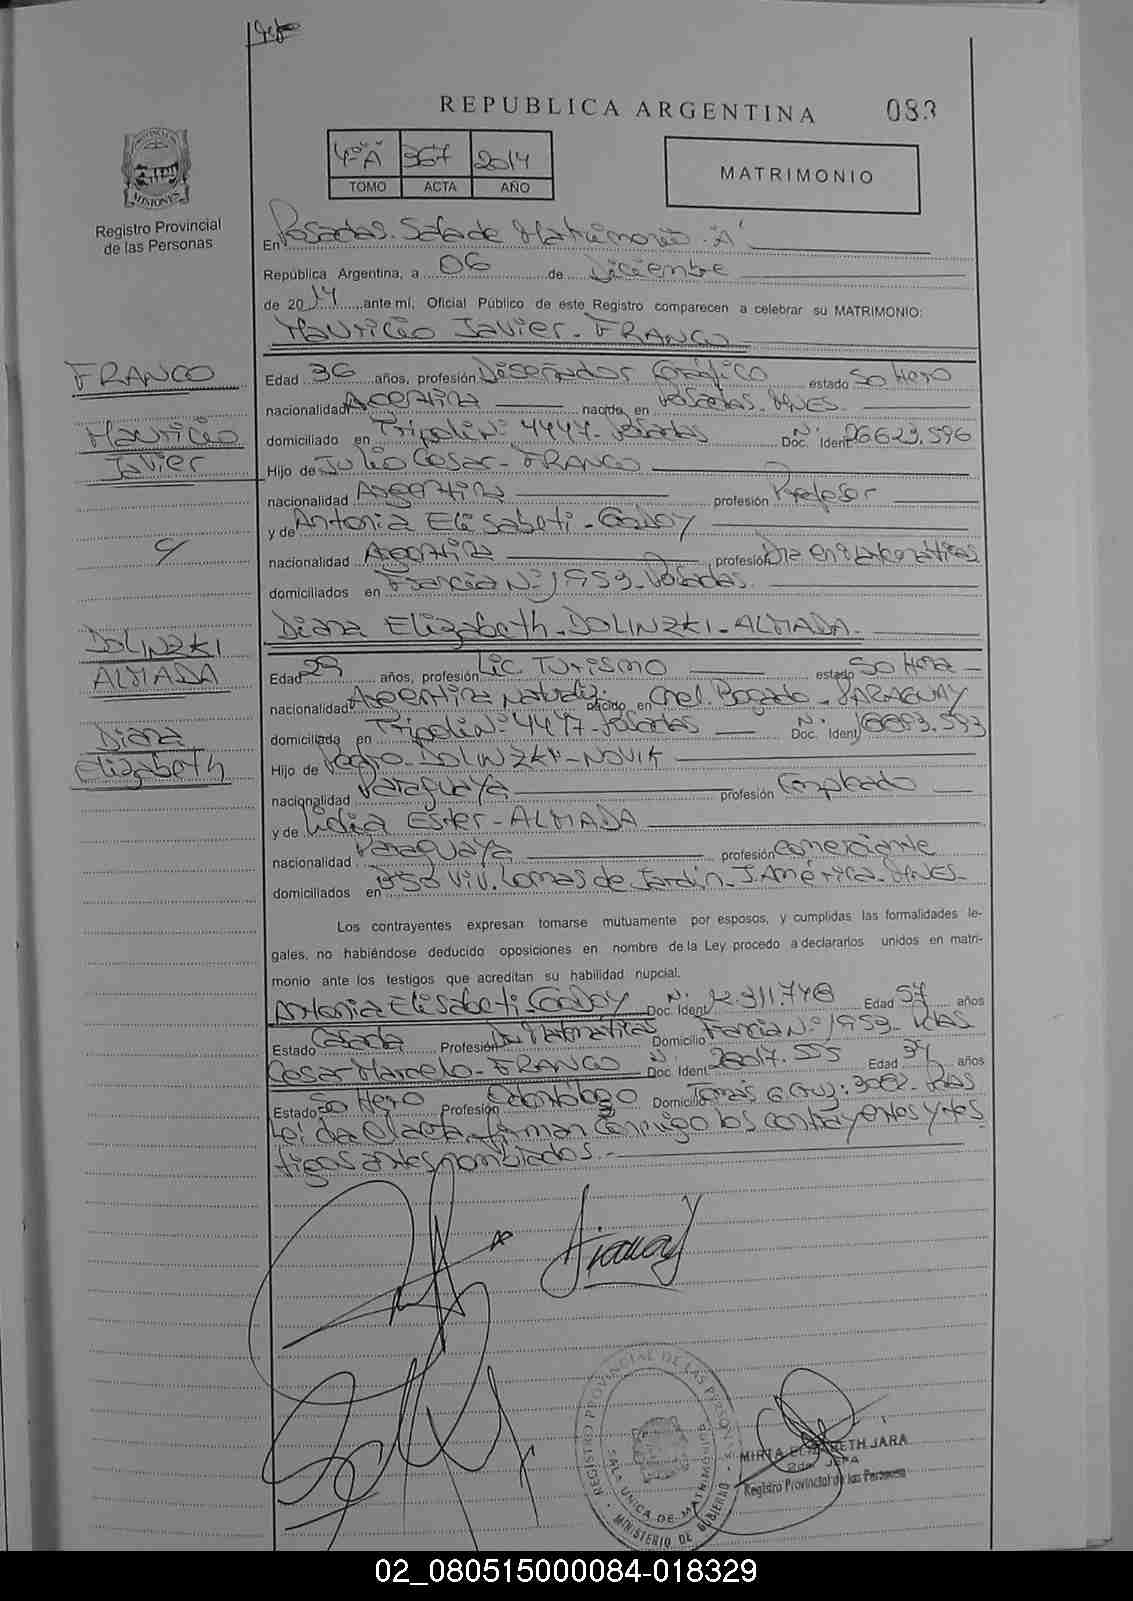 REPUBLICA ARGENTINA 083
4º "A" 367 2014
TOMO ACTA AÑO
MATRIMONIO
PROVINCIA DE MISIONES
Registro Provincial
de las Personas
En Posadas. Sala de Matrimonio "A"
República Argentina, a 06 de Diciembre
de 2014 ante mí, Oficial Público de este Registro comparecen a celebrar su MATRIMONIO:
Mauricio Javier - FRANCO
FRANCO
Mauricio
Javier
Edad 36 años, profesión Diseñador Gráfico estado Soltero
nacionalidad Argentina nacido en Posadas. MNES.
domiciliado en Tripoli Nº 4447 - Posadas Doc. Ident. Nº 26.623.596
Hijo de Julio Cesar - FRANCO
nacionalidad Argentina profesión Profesor
y de Antonia Elisabeti - Godoy
nacionalidad Argentina profesión Dra en Matemáticas
domiciliados en Francia Nº 1953 - Posadas.
c/
DOLINZKI
ALMADA
Diana
Elizabeth
Diana Elizabeth - DOLINZKI - ALMADA.
Edad 29 años, profesión Lic. Turismo estado Soltera
nacionalidad Argentina Naturaliz. nacido en Cnel. Bogado - PARAGUAY
domiciliada en Tripoli Nº 4447 - Posadas Doc. Ident. Nº
Hijo de Pedro - DOLINZKI - NOVIK
nacionalidad Paraguaya profesión Empleado
y de Lidia Ester - ALMADA
nacionalidad Paraguaya profesión Comerciante
domiciliados en 358 Viv. Lomas de Jardín - J. América - MNES -
Los contrayentes expresan tomarse mutuamente por esposos, y cumplidas las formalidades le-
gales, no habiéndose deducido oposiciones en nombre de la Ley procedo a declararlos unidos en matri-
monio ante los testigos que acreditan su habilidad nupcial.
Antonia Elisabeti - Godoy Doc. Ident. Nº 12.311.748 Edad 57 años
Estado Casada Profesión Dra Matemáticas Domicilio Francia Nº 1953 - Pdas
Cesar Marcelo - FRANCO Doc. Ident. Nº Edad años
Estado Soltero Profesión Odontólogo Domicilio Tomás G. Cruz: 3082 - Pdas
Leída el acta, firman conmigo los contrayentes y tes
tigos antes nombrados. -
REGISTRO PROVINCIAL DE LAS PERSONAS
SALA UNICA DE MATRIMONIOS
MINISTERIO DE GOBIERNO
MIRTA ELIZABETH JARA
2da. JEFA
Registro Provincial de las Personas
02_080515000084-018329